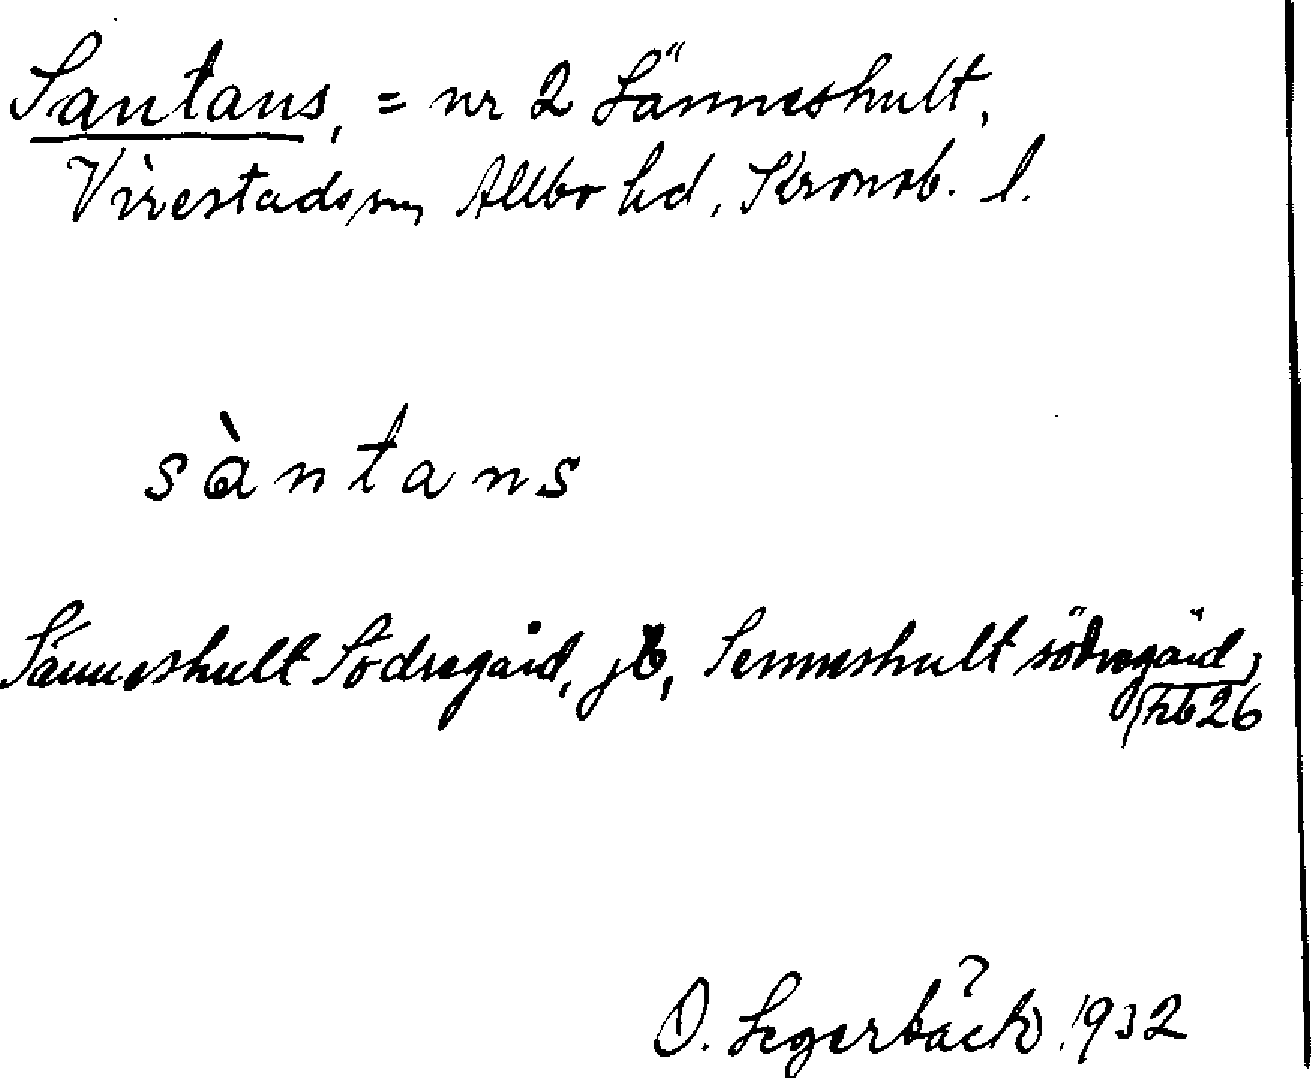 Santans, = nr 2 Sänneshult,
Virestads sn, Allbo hd, Kronob. l.
sàntans
Sänneshult Södregård, jb, Senneshult södregård,
hb 26
O. Segerbäck 1932